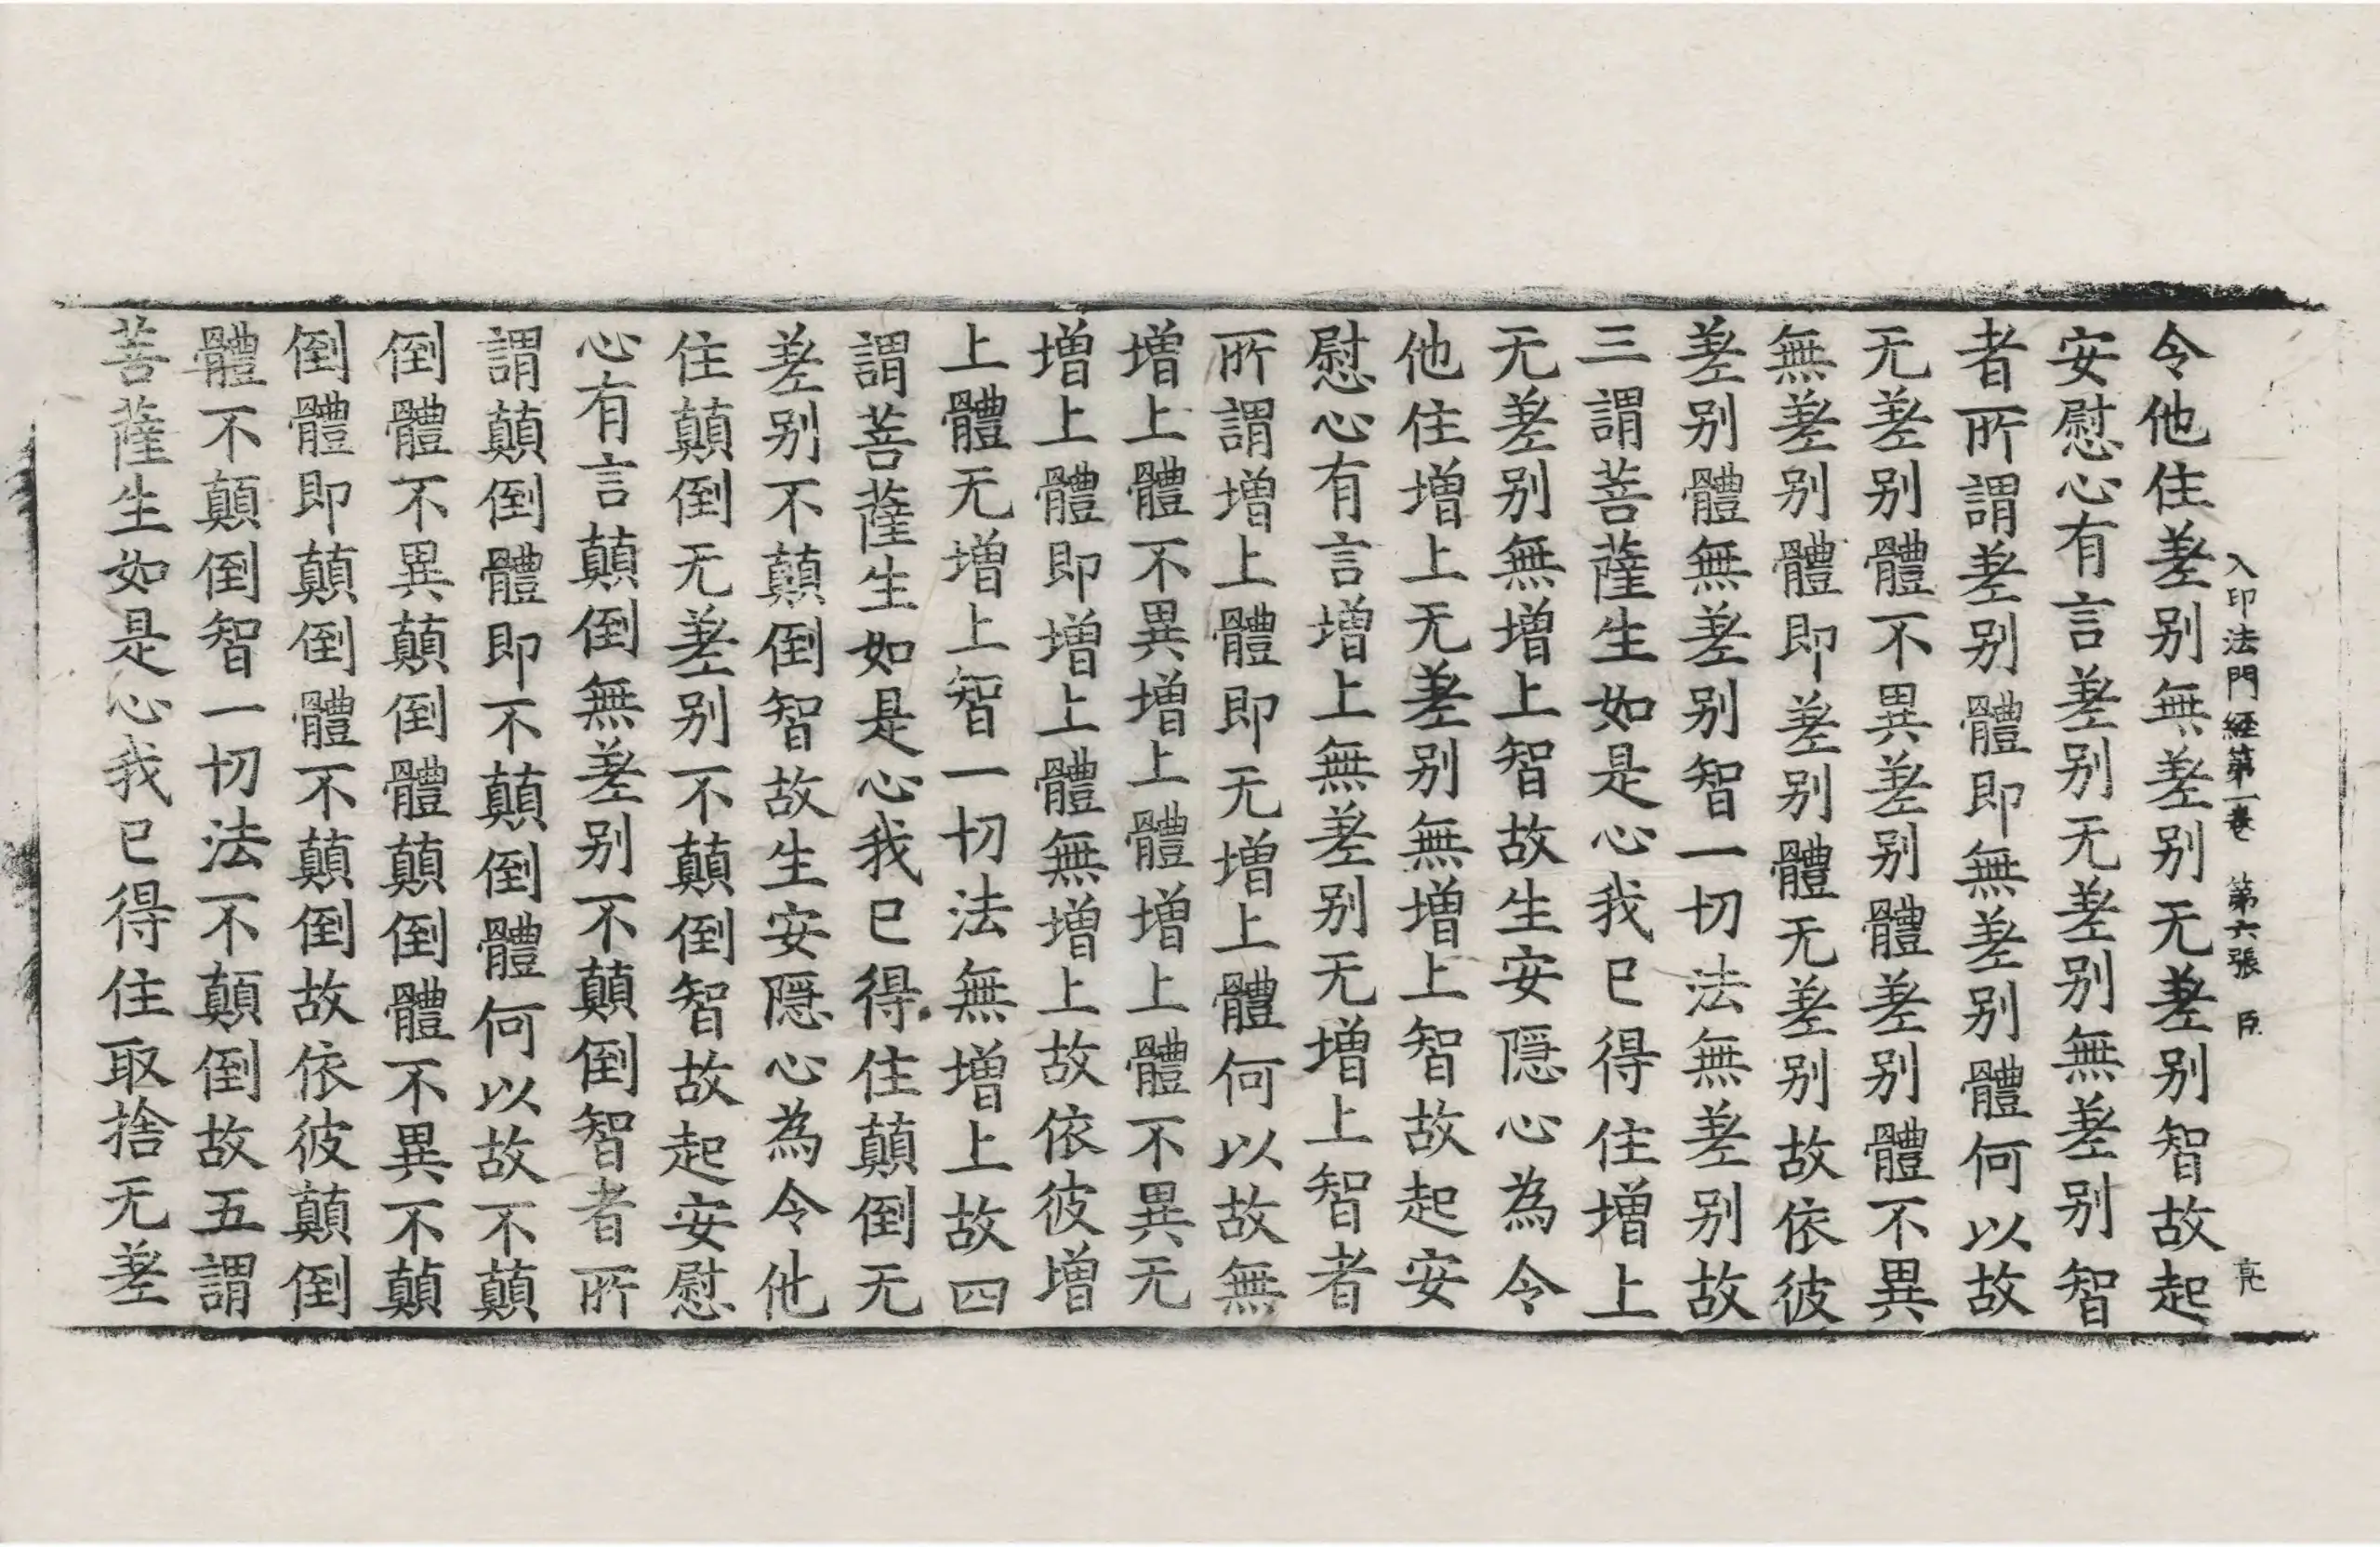 入印法門経第一卷 第六張 臣 亮
令他住差别無差别无差别智故起
安慰心有言差别无差别無差别智
者所謂差别體即無差别體何以故
无差别體不異差别體差别體不異
無差别體即差别體无差别故依彼
差别體無差别智一切法無差别故
三謂菩薩生如是心我已得住增上
无差别無增上智故生安隱心為令
他住增上无差别無增上智故起安
慰心有言增上無差别无增上智者
所謂增上體即无增上體何以故無
增上體不異增上體增上體不異无
增上體即增上體無增上故依彼增
上體无增上智一切法無增上故四
謂菩薩生如是心我已得住顛倒无
差别不顛倒智故生安隱心為令他
住顛倒无差别不顛倒智故起安慰
心有言顛倒無差别不顛倒智者所
謂顛倒體即不顛倒體何以故不顛
倒體不異顛倒體顛倒體不異不顛
倒體即顛倒體不顛倒故依彼顛倒
體不顛倒智一切法不顛倒故五謂
菩薩生如是心我已得住取捨无差